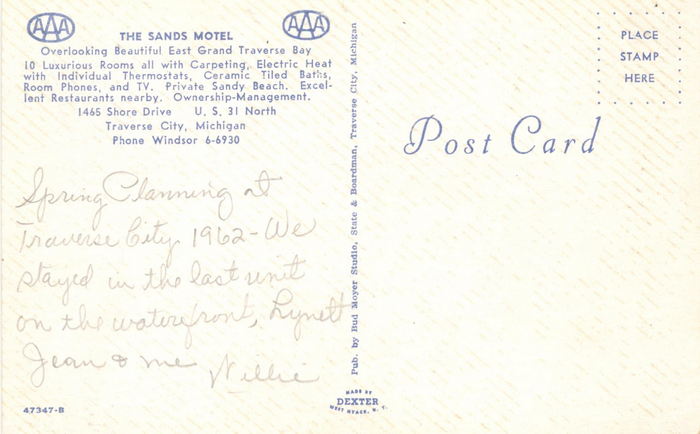 AAA
AAA
THE SANDS MOTEL
Overlooking Beautiful East Grand Traverse Bay
10 Luxurious Rooms all with Carpeting, Electric Heat
with Individual Thermostats, Ceramic Tiled Baths,
Room Phones, and TV. Private Sandy Beach. Excel-
lent Restaurants nearby. Ownership-Management.
1465 Shore Drive U. S. 31 North
Traverse City, Michigan
Phone Windsor 6-6930
Spring Planning at
Traverse City 1962 - We
stayed in the last unit
on the waterfront, Lynett
Jean & me Willie
47347-B
Pub. by Bud Moyer Studio, State & Boardman, Traverse City, Michigan
MADE BY
DEXTER
WEST NYACK, N. Y.
PLACE
STAMP
HERE
Post Card